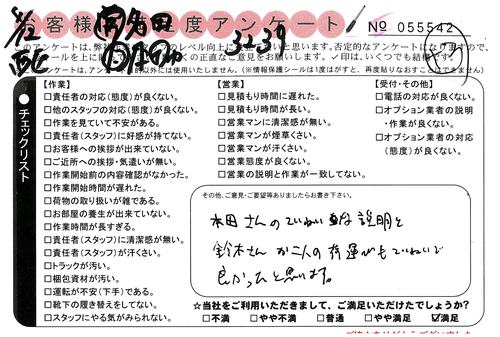 お客様満足度アンケート
№ 055542
3-39
このアンケートは、弊社
のレベル向上に
と思います。否定的なアンケートになりますので、
の正直なご意見をお願いします。✓印は、いくつでも結構です。
アンケートは、アン
以外には使用いたしません。(※情報保護シールは1度がはすと、再度粘りなおすことができません)
チェックリスト
【作業】
□責任者の対応(態度)が良くない。
□他のスタッフの対応(態度)が良くない。
□作業を見ていて不安がある。
□責任者(スタッフ)に好感が持てない。
□お客様への挨拶が出来ていない。
□ご近所への挨拶・気遣いが無い。
□作業開始前の内容確認がなかった。
□作業開始時間が遅れた。
□荷物の取り扱いが雑である。
□お部屋の養生が出来ていない。
□作業時間が長すぎる。
□責任者(スタッフ)に清潔感が無い。
□責任者(スタッフ)が汗くさい。
□トラックが汚い。
□梱包資材が汚い。
□運転が不安(下手)である。
□靴下の履き替えをしてない。
□スタッフにやる気がみられない。
【営業】
□見積もり時間に遅れた。
□見積もり時間が長い。
□営業マンに清潔感が無い。
□営業マンが煙草くさい。
□営業マンが汗くさい。
□営業態度が良くない。
□営業の説明と作業が一致してない。
【受付・その他】
□電話の対応が良くない。
□オプション業者の説明
・作業が良くない。
□オプション業者の対応
(態度)が良くない。
その他、ご意見・ご要望等ありましたらお書き下さい。
本田さんのていねいな説明と
鈴木さんか二人の荷運びもていねいで
良かったと思います。
☆当社をご利用いただきまして、ご満足いただけたでしょうか?
□不満 □やや不満 □普通 □やや満足 ☑満足